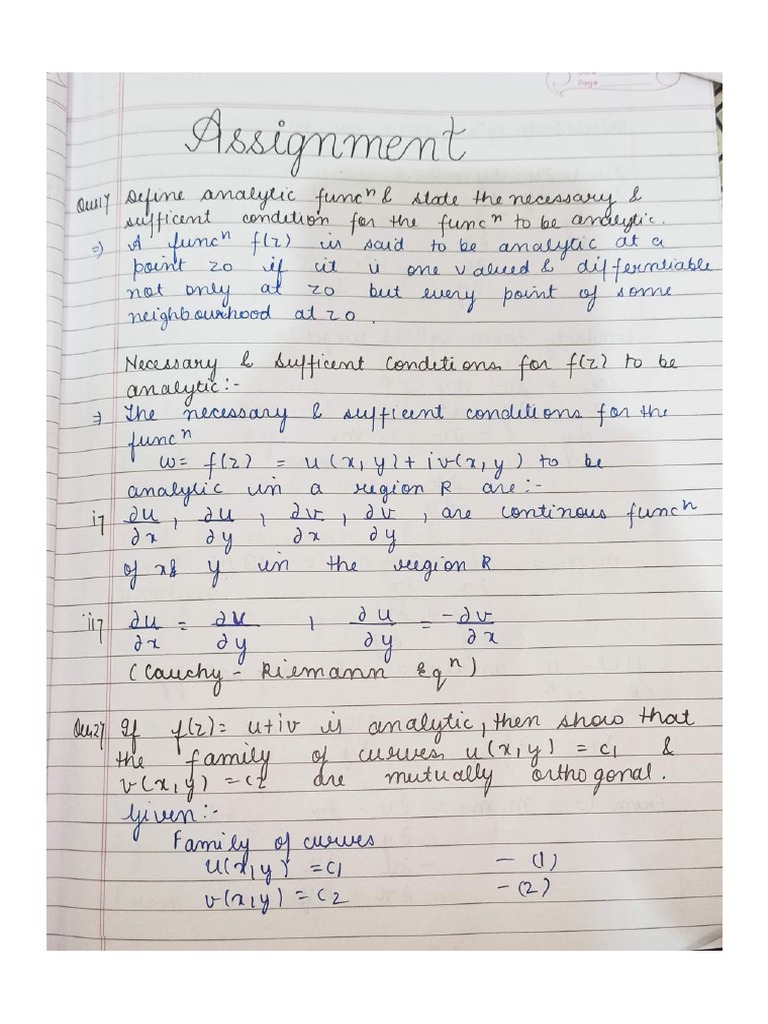 Page
Assignment
Ques1) Define analytic funcⁿ & state the necessary &
sufficent condition for the funcⁿ to be analytic.
=> A funcⁿ f(z) is said to be analytic at a
point z0 if it is one valued & differntiable
not only at z0 but every point of some
neighbourhood at z0.
Necessary & sufficent conditions for f(z) to be
analytic:-
=> The necessary & sufficent conditions for the
funcⁿ
w = f(z) = u(x,y) + iv(x,y) to be
analytic in a region R are:-
i) ∂u/∂x, ∂u/∂y, ∂v/∂x, ∂v/∂y, are continous funcⁿ
of x & y in the region R
ii) ∂u/∂x = ∂v/∂y , ∂u/∂y = -∂v/∂x
(Cauchy - Riemann Eqⁿ)
Ques2) If f(z) = u+iv is analytic, then show that
the family of curves u(x,y) = c1 &
v(x,y) = c2 are mutually orthogonal.
Given:-
Family of curves
u(x,y) = c1 - (1)
v(x,y) = c2 - (2)